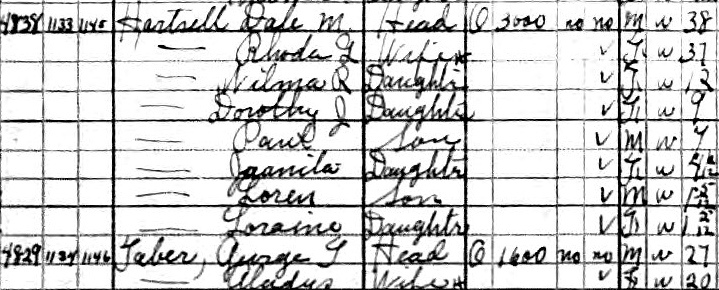 4838 1133 1145 Hartsell Dale M. Head O 3000 no no M W 38
— Rhoda F Wife H ✓ F W 37
— Wilma R Daughter ✓ F W 12
— Dorothy J Daughter ✓ F W 9
— Paul Son ✓ M W 7
— Juanita Daughter ✓ F W
— Loren Son ✓ M W 1 5/12
— Loraine Daughter ✓ F W 1 5/12
4829 1134 1146 Taber, George T Head O 1600 no no M W 27
— Gladys Wife H ✓ F W 20